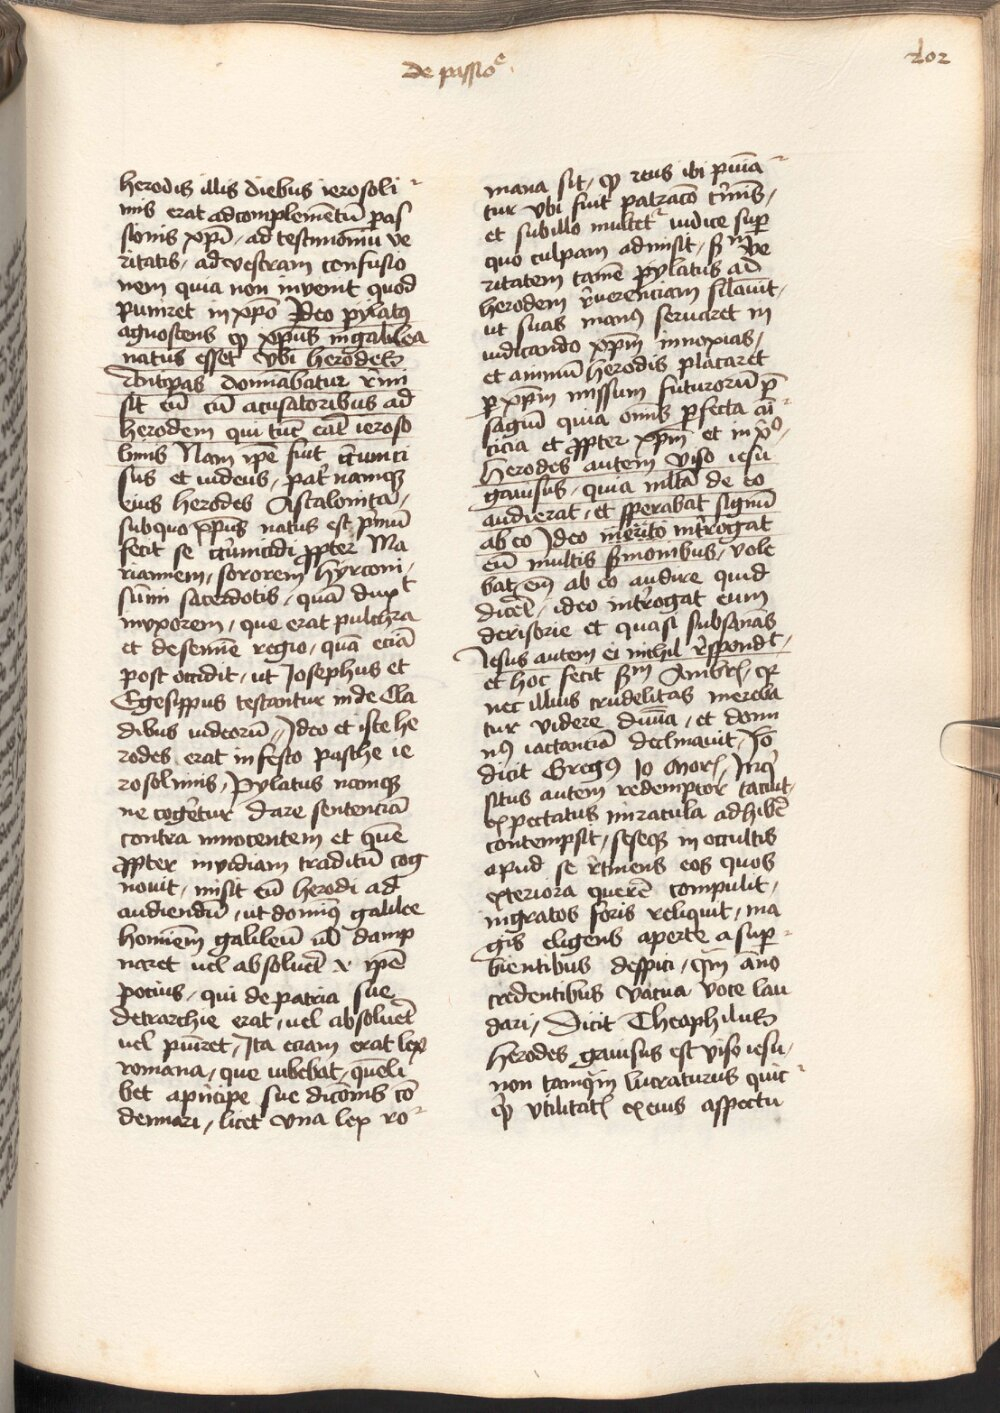 de passioe
202
herodis illis diebus ierosoli
mis erat ad complementū pas
sionis xp̄i, ad testimoniū ve
ritatis, ad vestram confusio
nem quia non invenit quod
puniret in xp̄o Ideo pylatꝰ
agnoscens ꝙ xp̄us in galilea
natus esset vbi herodes
Antipas dominabatur remi
sit eū cū acusatoribus ad
herodem qui tūc erat ieroso
limis Nam ip̄e fuit circūci
sus et iudeus, pater namqꝫ
eius herodes Ascalonita,
sub quo xp̄us natus est p̄mū
fecit se circūcidi ꝓpter Ma
riannem, sororem hyrconi,
sūmi sacerdotis, quā duxt
in vxorem, que erat pulchra
et de semīe regio, quā eciā
post occidit, ut Iosephus et
Egesippus testantur in de Cla
dibus iudeorū, Ideo et iste he
rodes erat in festo pasche ie
rosolimis, Pylatus namqꝫ
ne cogeretur dare sentenciā
contra innocentem et quē
ꝓpter invidiam traditū cog
novit, misit eū herodi ad
audiendū, ut dominꝰ galilee
hominem galileū ul damp
naret uel absoluet ip̄e
pocius, qui de patria sue
detrarchie erat, uel absolueret
uel puniret, Ita eciam erat lex
romana, que iubebat, queli
bet a principe sue dicōnis cō
dennari, licet vna lex ro
mana sit, ꝙ reus ibi punia
tur vbi fuit patratō crīnis,
et sub illo multetur iudice sup
quo culpam admisit, ve
ritatem tamē pylatus ad
herodem reuerenciam silauit,
ut suas manꝰ seruaret in
iudicando xp̄m innoxias,
et animū herodis placaret
ꝑ xp̄m missum futurorū p̄
sagiū quia omnis ꝑfecta ami
cicia et ꝓpter xp̄m et in xp̄o,
Herodes autem viso iesu
gauisus, quia multa de eo
audierat, et sperabat signū
ab eo Ideo merito interrogat
eū multis sermonibus, vole
bat em ab eo audire quid
diceret, ideo interrogat eum
derisorie et quasi subsanās
Iesus autem ei nichil respondt,
et hoc fecit sm Ambr, qr
nec illius crudelitas mereba
tur videre diuina, et domi
nꝰ iactanciā declinauit, Io
dicit Gregꝰ 10 Morl, Inqui
situs autem redemptor tacuit,
expectatus miracula adhibere
contempsit, seseqꝫ in occultis
apud se retinens eos quos
exteriora querere compulit,
ingratos foris reliquit, ma
gis eligens aperte a super
bientibus despici, qm a nō
credentibus vacua voce lau
dari, Dicit Theophilus
Herodes gauisus est viso iesu,
non tamqm lucraturus quic
qm utilitatis ex eius aspectu